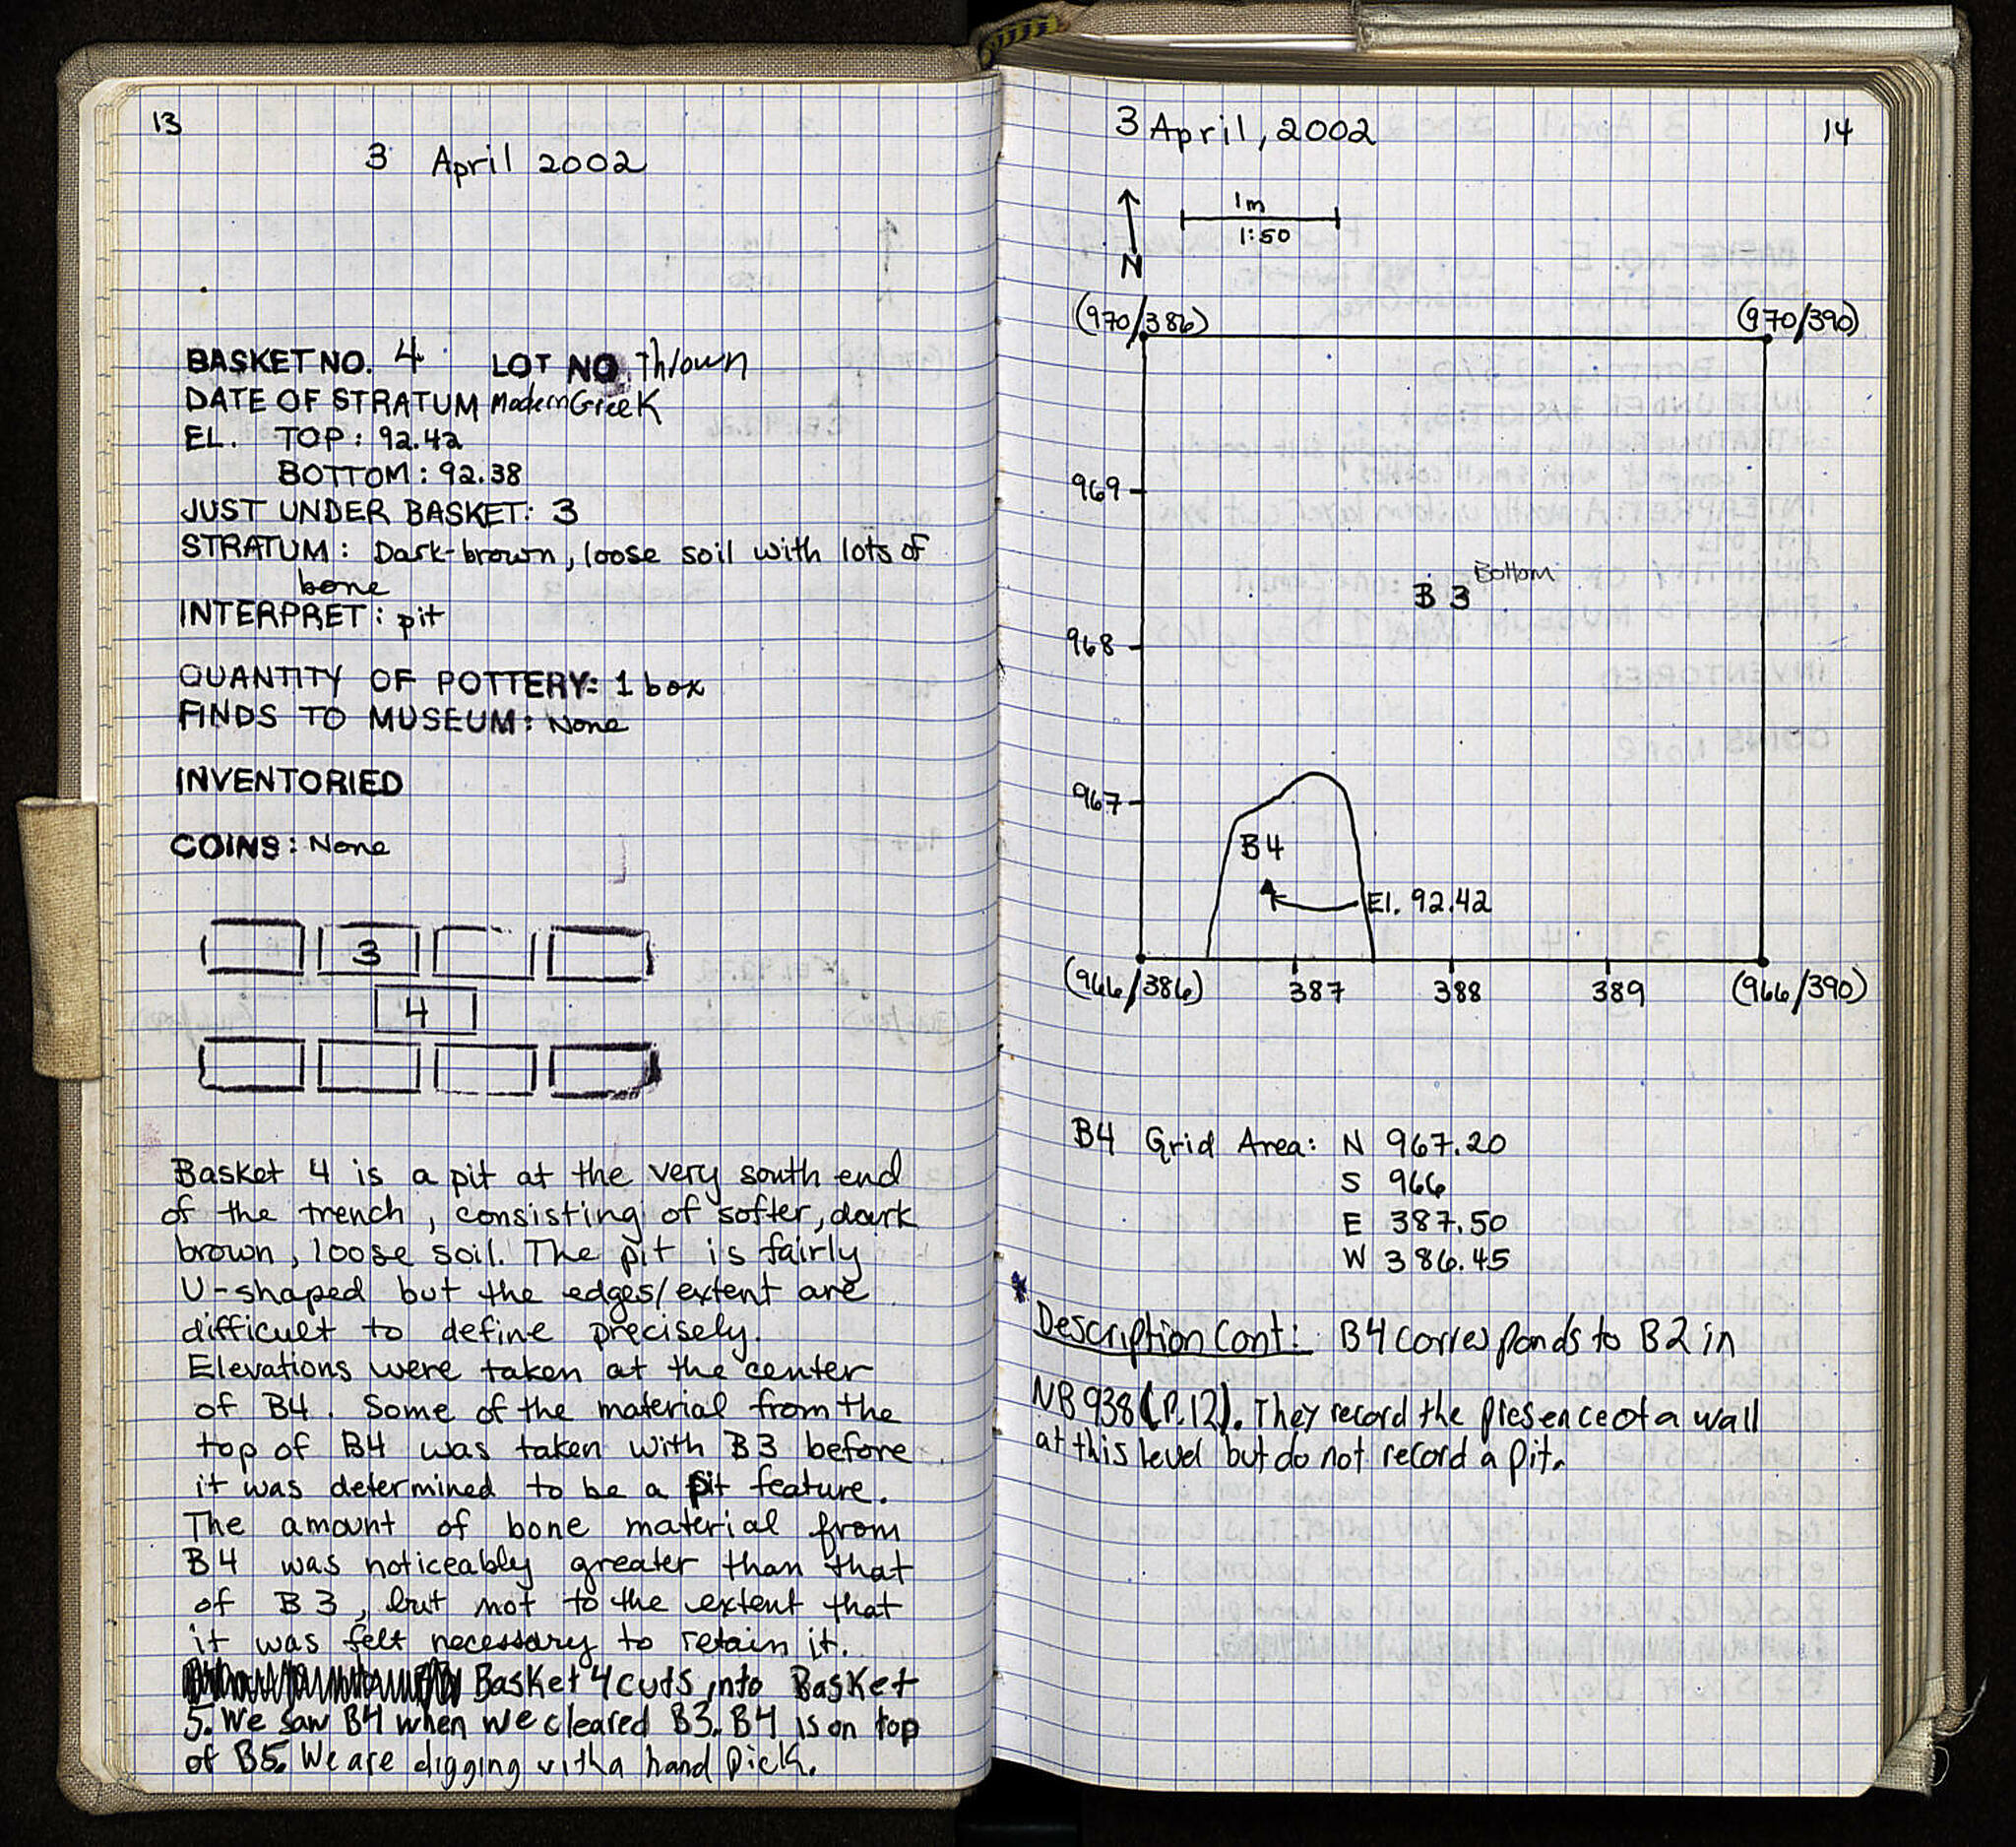 13
3 April 2002
BASKET NO. 4 LOT NO thrown
DATE OF STRATUM Modern Greek
EL. TOP: 92.42
BOTTOM: 92.38
JUST UNDER BASKET: 3
STRATUM: Dark-brown, loose soil with lots of
bone
INTERPRET: pit
QUANTITY OF POTTERY: 1 box
FINDS TO MUSEUM: None
INVENTORIED
COINS: None
3
4
Basket 4 is a pit at the very south end
of the trench, consisting of softer, dark
brown, loose soil. The pit is fairly
U-shaped but the edges/extent are
difficult to define precisely.
Elevations were taken at the center
of B4. Some of the material from the
top of B4 was taken with B3 before
it was determined to be a pit feature.
The amount of bone material from
B4 was noticeably greater than that
of B3, but not to the extent that
it was felt necessary to retain it.
Basket 4 cuts into Basket
5. We saw B4 when we cleared B3. B4 is on top
of B5. We are digging with a hand pick.
3 April, 2002
14
1m
1:50
N
(970/386)
(970/390)
969
Bottom
B 3
968
967
B4
El. 92.42
(966/386)
387
388
389
(966/390)
B4 Grid Area: N 967.20
S 966
E 387.50
W 386.45
*
Description Cont: B4 corresponds to B2 in
NB 938 (P.12). They record the presence of a wall
at this level but do not record a pit.